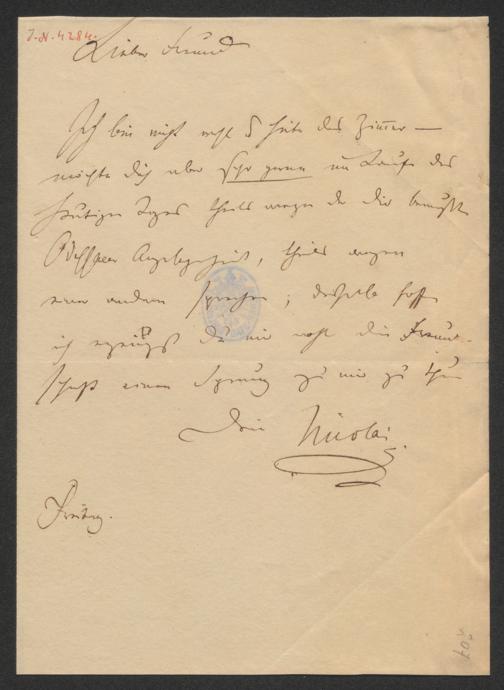 J. N. 4284.
Lieber Freund
Ich bin nicht wohl & hüte das Zimmer —
möchte dich aber sehr gerne im Laufe des
heutigen Tages theils wegen der dir bewußten
Angelegenheit, theils wegen
einer andern sprechen; deshalb hoffe
ich erzeigst du mir wohl die Freund-
schaft einen Sprung zu mir zu thun
Dein Nicolai.
Freitag.